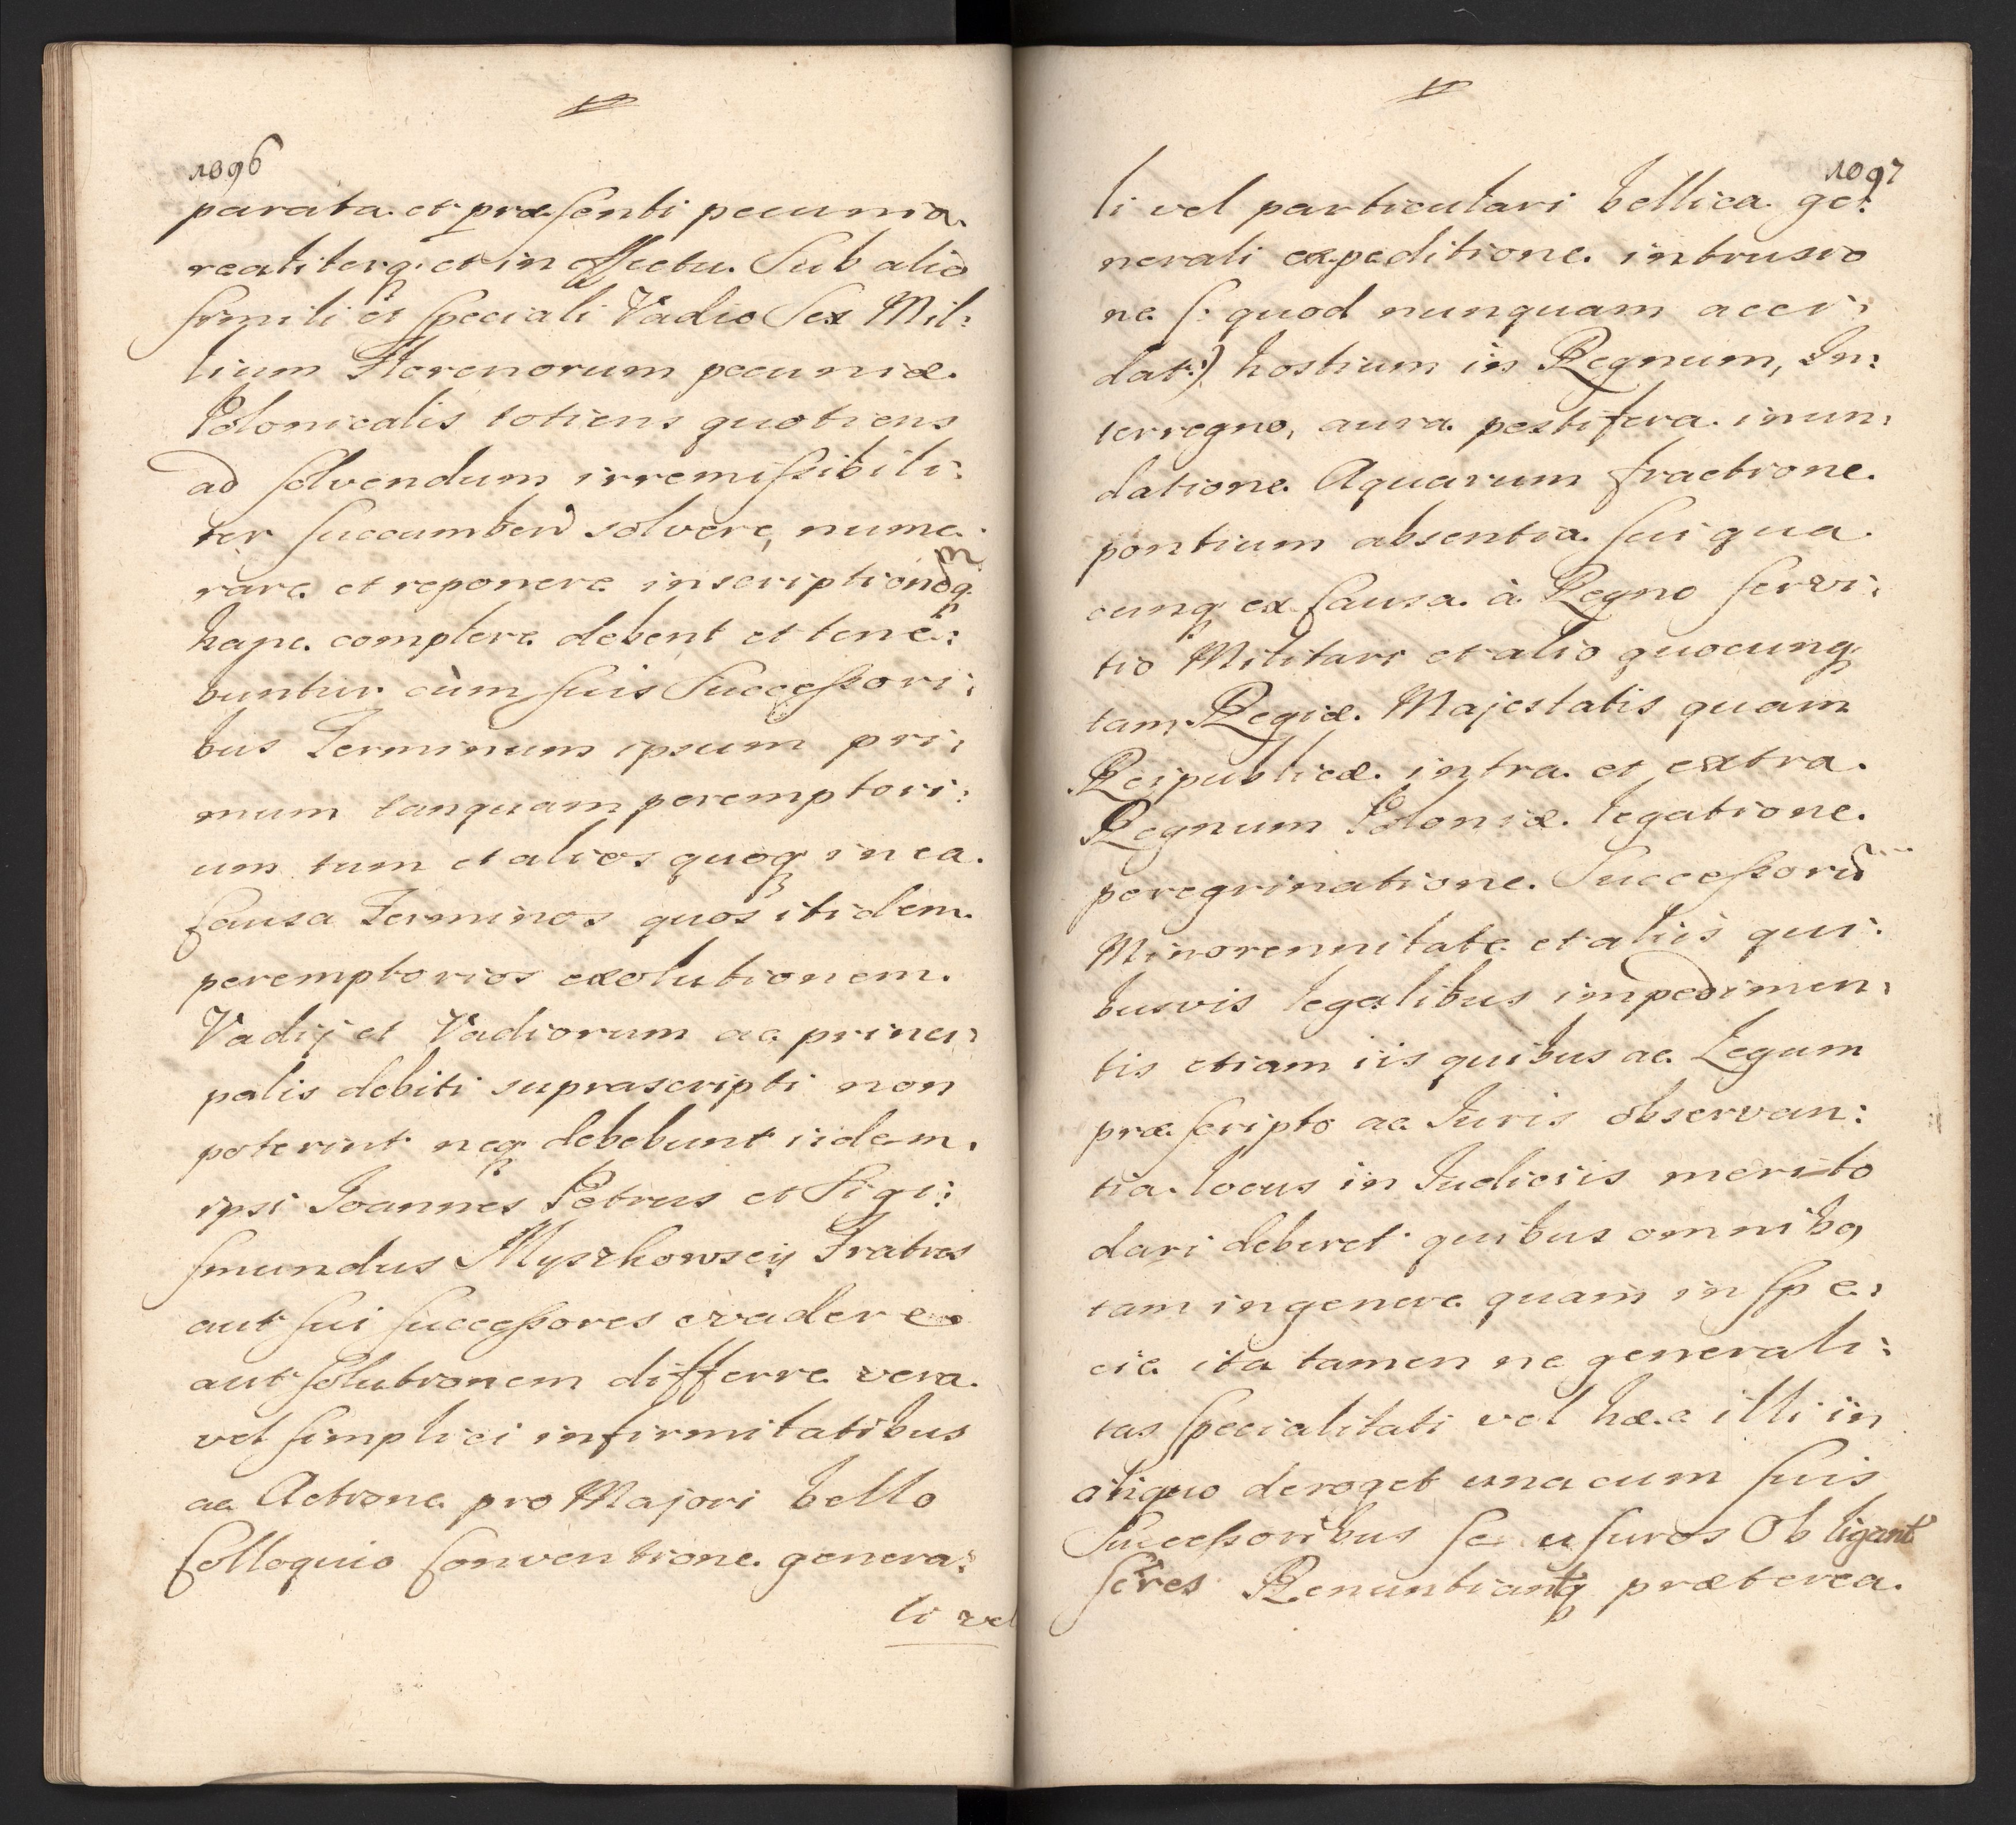 1096
parata et præsenti pecunia
realiterq. et in effectu. Sub alio
simili et speciali Vadio Sex Mil:
lium Florenorum pecuniæ
Polonicalis totiens quotiens
ad solvendum irremissibili:
ter succumbend solvere, nume:
rare et reponere inscriptionemq.
hanc complere debent et tene:
buntur cùm suis Successori:
bus Terminum ipsum pri:
mum tanquam peremptori:
um tum et alios quoq in ea
Causa Terminos quos itidem
peremptorios exolutionem
Vadij et Vadiorum ac princi:
palis debiti suprascripti non
poterint neq debebunt iidem
ipsi Joannes Petrus et Sigi:
smundus Myszkowscÿ Fratres
aut sui successores evadere
aut solutionem differre vera
vel simplici infirmitatibus
ac Actione pro Majori bello
Colloquio Conventione genera:
li vel
1097
li vel particulari bellica ge:
nerali expeditione intrusio
ne (: quod nunquam acci:
dat:) hostium in Regnum, In:
terregno, aura pestifera inun:
datione Aquarum fractione
pontium absentia sui qua
cunq ex Causa à Regno servi:
tio Militari et alio quocunq
tam Regiæ Majestatis quam
Reipublicæ intra et extra
Regnum Poloniæ legatione
peregrinatione Successorū
Minorennitate et aliis qui:
busvis legalibus impedimen:
tis etiam iis quibus ac Legum
præscripto ac Juris observan:
tia locus in Judiciis merito
dari deberet quibus omnibq
tam in genere quam in spe:
cie ita tamen ne generali:
tas specialitati vel hæc illi in
aliquo deroget una cum suis
Successoribus se usuros Obligant
Renuntiantq præterea